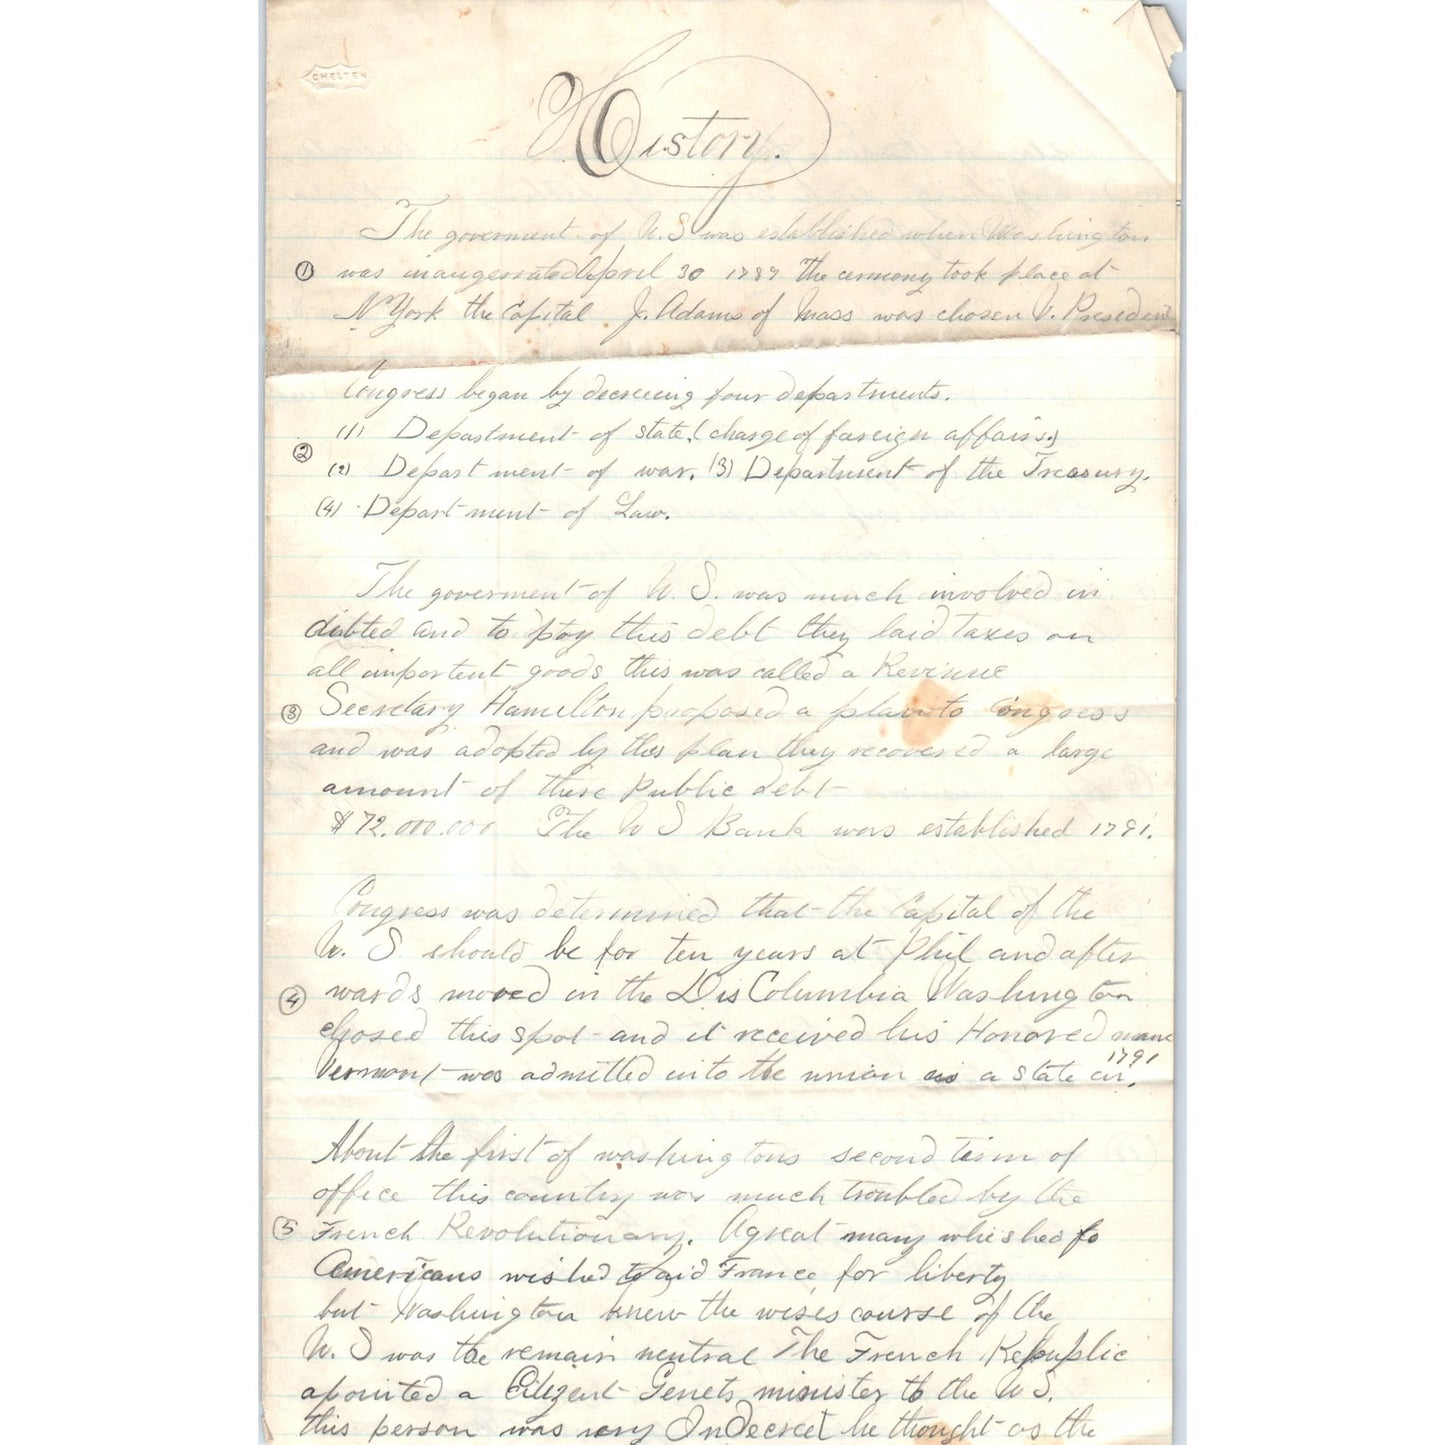 CHELTEN
History.
The goverment of U.S was established when Washington
① was inaugerated April 30 1789 The cermony took place at
N York the Capital J. Adams of Mass was chosen V. President
Congress began by decreeing four departments.
(1) Department of state, (charge of foreign affairs.)
②
(2) Department of war. (3) Department of the Treasury.
(4) Department of Law.
The goverment of U. S. was much involved in
debted and to pay this debt they laid taxes on
all importent goods, this was called a Revenue
③ Secretary Hamelton proposed a plan to Congress
and was adopted by this plan they recovered a large
amount of these Public debt
$72.000.000 The U S Bank was established 1791.
Congress was determined that the Capital of the
U. S should be for ten years at Phil and after
④ wards moved in the Dis Columbia Washington
chosed this spot and it received his Honored name
Vermont was admitted into the union as a state in 1791.
About the first of washingtons second term of
office this country was much troubled by the
⑤ French Revolutionary. A great many whished fo
Americans wished to aid France for liberty
but Washington knew the wises course of the
U. S was the remain neutral The French Republic
apointed a Citizent Genets minister to the U S.
this person was very Indecreet he thought as the